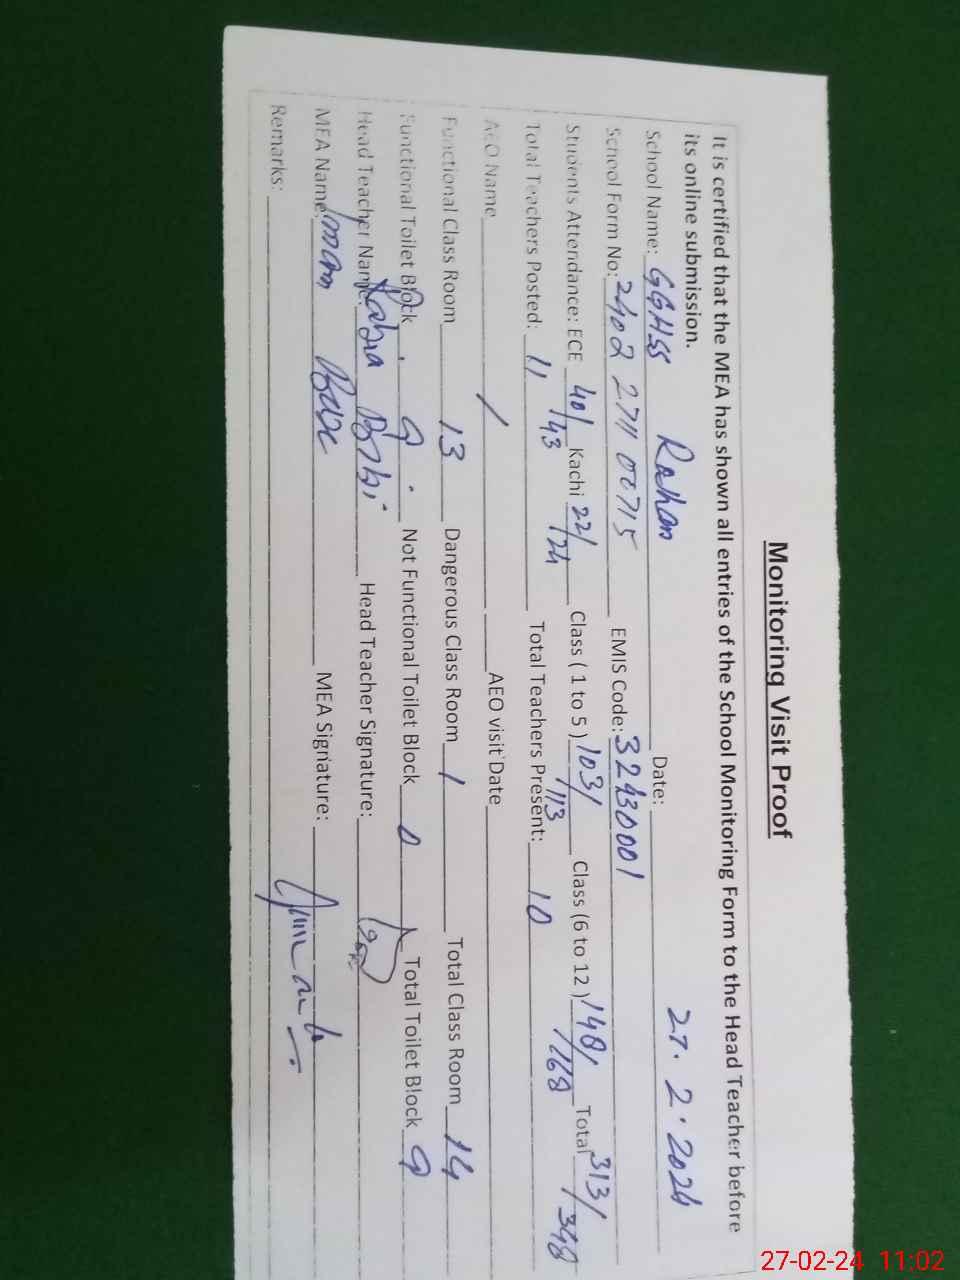 Monitoring Visit Proof
It is certified that the MEA has shown all entries of the School Monitoring Form to the Head Teacher before
its online submission.
School Name: GGHSS Rakan Date: 27.2.2024
School Form No: 2402 2711 00715 EMIS Code: 32430001
Students Attendance: ECE 40/43 Kachi 22/24 Class ( 1 to 5 ) 103/113 Class (6 to 12 ) 148/168 Total 313/348
Total Teachers Posted: 11 Total Teachers Present: 10
AEO Name / AEO visit Date
Functional Class Room 13 Dangerous Class Room 1 Total Class Room 14
Functional Toilet Block 9 Not Functional Toilet Block 0 Total Toilet Block 9
Head Teacher Name: Rabia Bibi Head Teacher Signature:
MEA Name: Imam Bux MEA Signature:
Remarks:
27-02-24 11:02